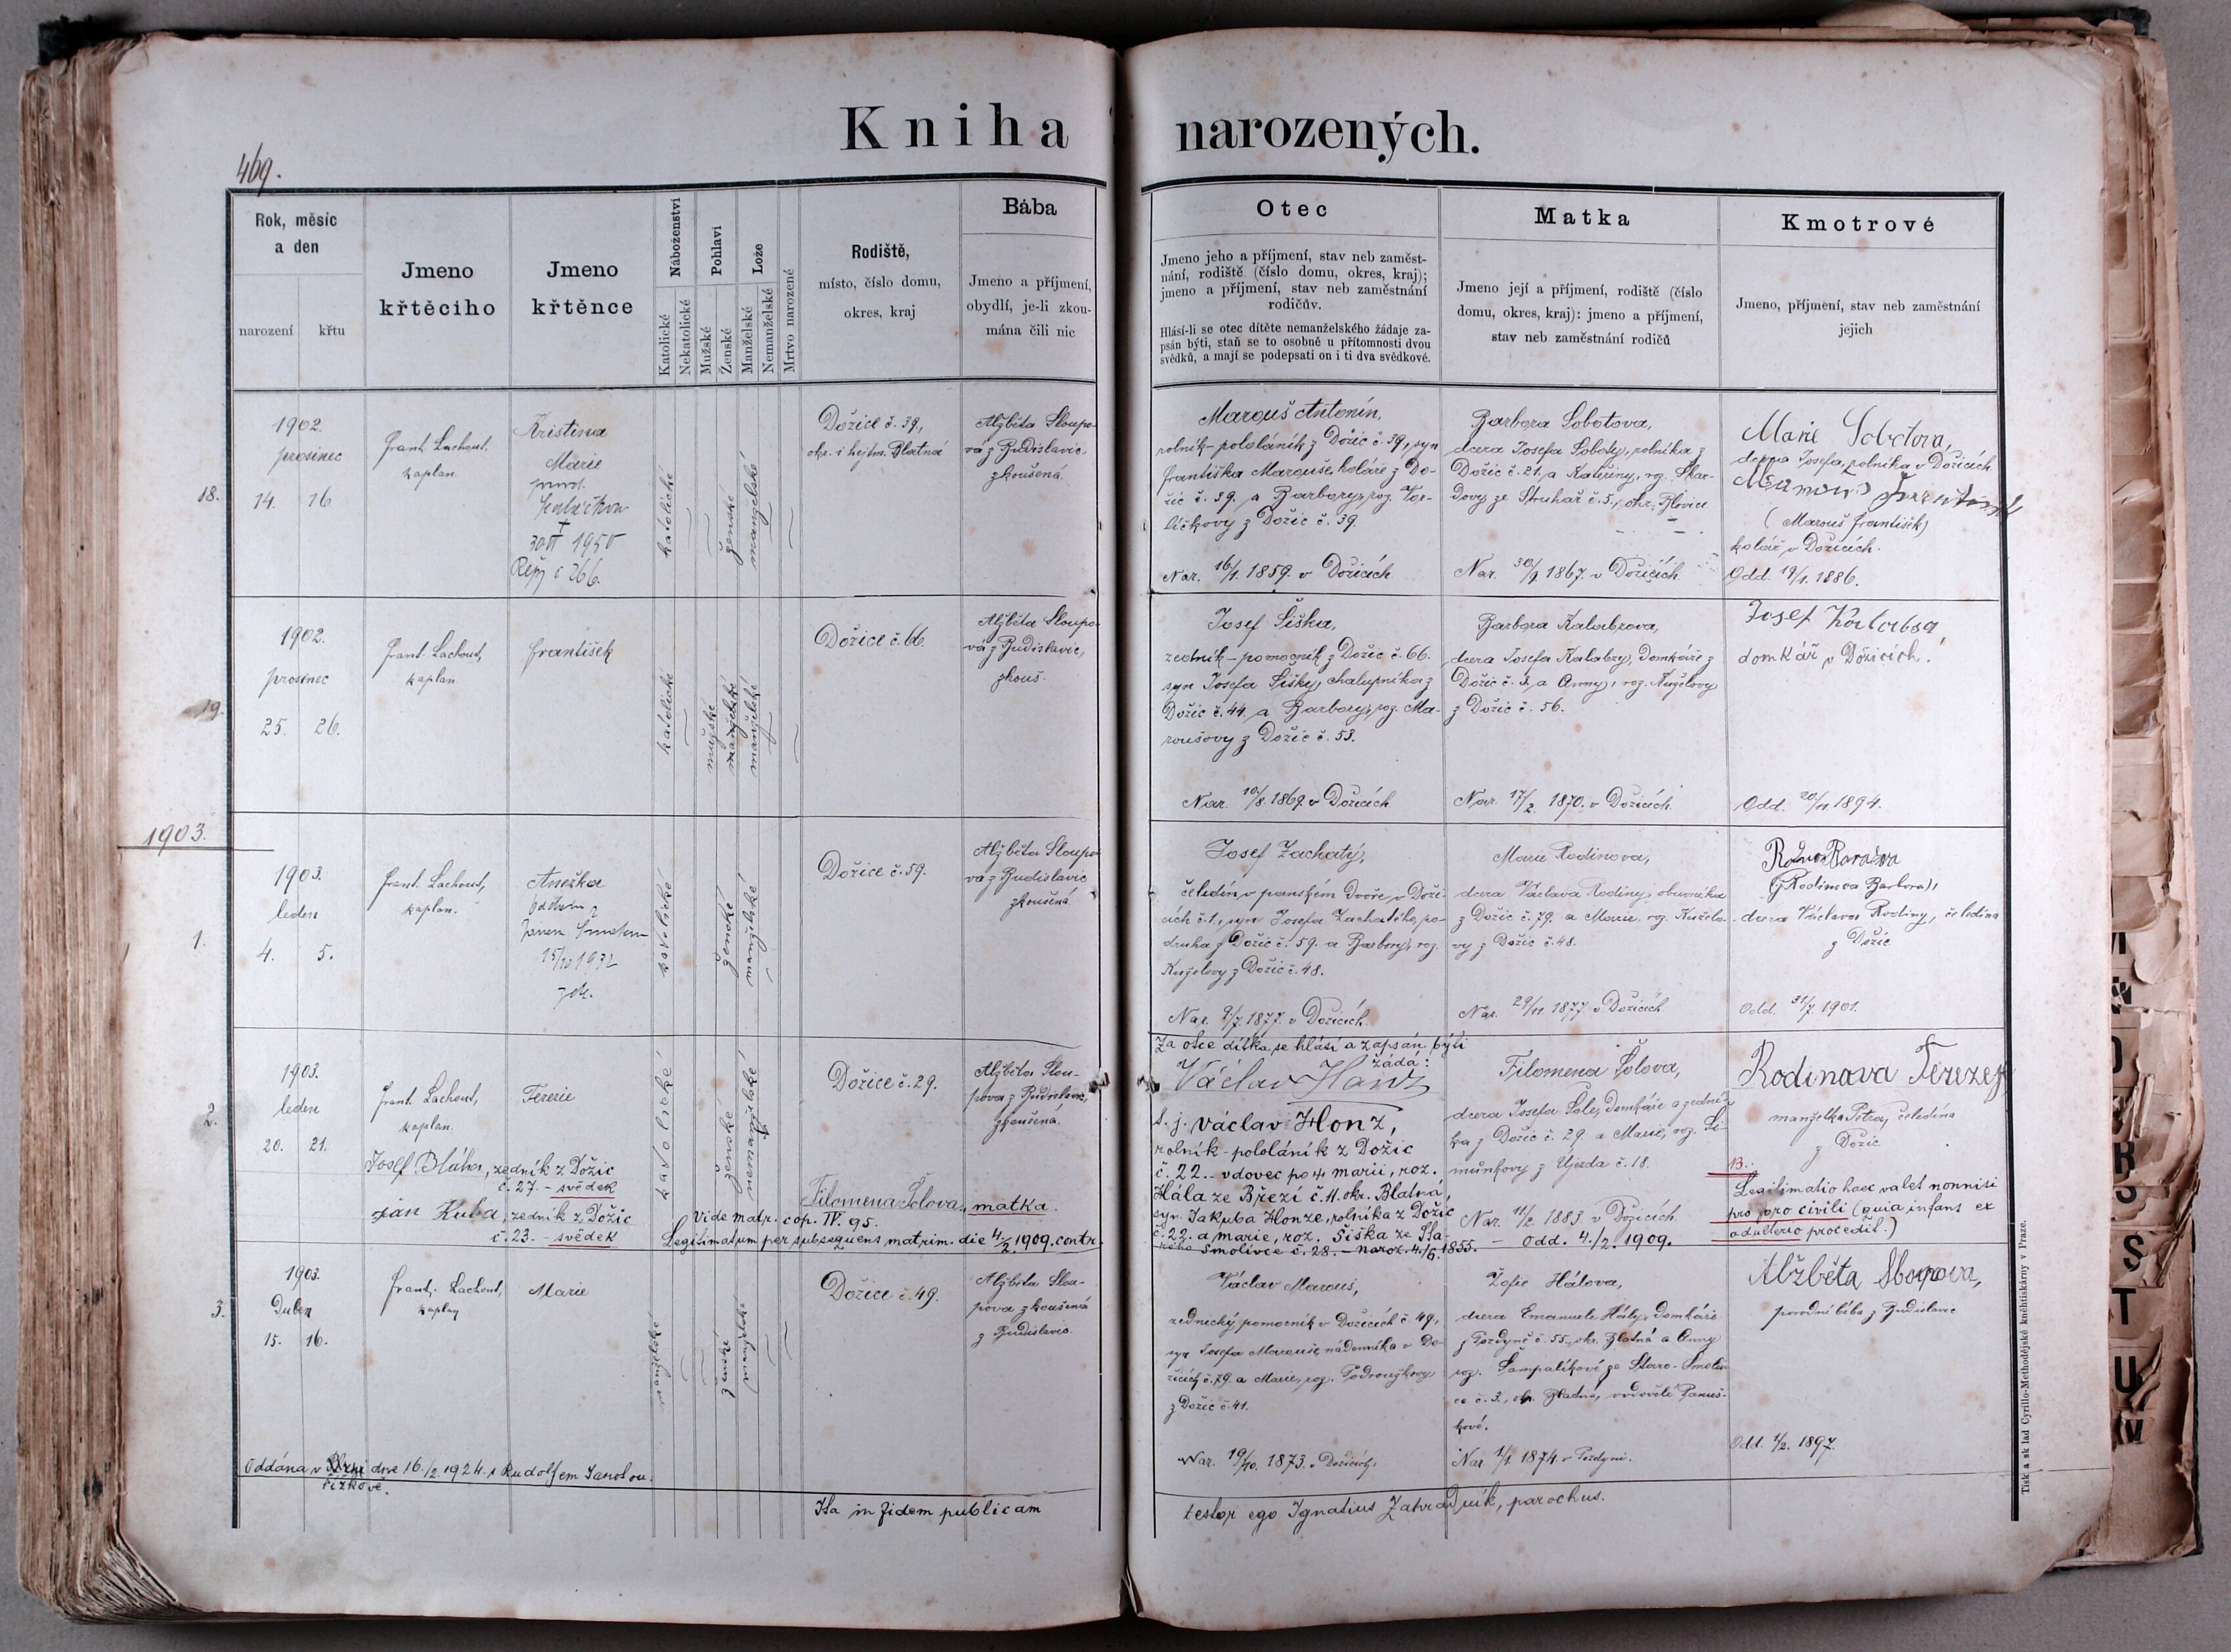 Kniha narozených.
469.
Rok, měsíc
a den
narození
křtu
Jmeno
křtěcího
Jmeno
křtěnce
Náboženství
Katolické
Nekatolické
Pohlaví
Mužské
Ženské
Lože
Manželské
Nemanželské
Mrtvo narozené
Rodiště,
místo, číslo domu,
okres, kraj
Bába
Jmeno a příjmení,
obydlí, je-li zkou-
mána čili nic
Otec
Jmeno jeho a příjmení, stav neb zaměst-
nání, rodiště (číslo domu, okres, kraj);
jmeno a příjmení, stav neb zaměstnání
rodičův.
Hlásí-li se otec dítěte nemanželského žádaje za-
psán býti, staň se to osobně u přítomnosti dvou
svědků, a mají se podepsati on i ti dva svědkové.
Matka
Jmeno její a příjmení, rodiště (číslo
domu, okres, kraj): jmeno a příjmení,
stav neb zaměstnání rodičů
Kmotrové
Jmeno, příjmení, stav neb zaměstnání
jejich
18.
1902.
prosinec
14. 16.
Frant. Lachout,
kaplan.
Kristina
Marie
† 1950
Řepy č 266.
katolické
ženské
manželské
Dožice č. 39,
okr. i hejtm. Blatná
Alžběta Sloupo-
vá z Budislavic,
zkoušená
Marouš Antonín,
rolník - pololáník z Dožic č. 39, syn
Františka Marouše, koláře z Do-
žic č. 39. a Barbory, roz.
z Dožic č. 39.
Nar. 16/1. 1859. v Dožicích
Barbora Sobotova,
dcera Josefa Soboty, rolníka z
Dožic č. 21. a Kateřiny, roz. Škar-
dovy ze Struhař č. 5., okr.
Nar. 30/9 1867. v Dožicích.
Marie Sobotova,
dcera Josefa, rolníka v Dožicích
(Marouš František)
kolář v Dožicích.
Odd. 19/1. 1886.
19.
1902.
prosinec
25. 26.
Frant. Lachout,
kaplan.
František
katolické
mužské
manželské
manželské
Dožice č. 66.
Alžběta Sloupo-
vá z Budislavic,
zkouš.
Josef Šiška,
zedník - pomocník z Dožic č. 66.
syn Josefa Šišky, chalupníka z
Dožic č. 44. a Barbory, roz. Ma-
roušovy z Dožic č. 53.
Nar. 10/8. 1869. v Dožicích
Barbora Kalabzova,
dcera Josefa Kalabzy, domkáře z
Dožic č. 3. a Anny, roz. Kuželovy
z Dožic č. 56.
Nar. 17/2. 1870. v Dožicích.
Josef Kalabza,
domkář v Dožicích.
Odd. 20/11. 1894.
1903.
1.
1903.
leden
4. 5.
Frant. Lachout,
kaplan.
Anežka
15/10 1932
katolické
ženské
manželské
Dožice č. 59.
Alžběta Sloupo-
vá z Budislavic
zkoušená
Josef Zachatý,
čeledín v panském Dvoře v Doži-
cích č. 1., syn Josefa Zachatého, po-
druha z Dožic č. 59. a Barbory, roz.
Kuželovy z Dožic č. 48.
Nar. 2/7. 1877. v Dožicích.
Marie Rodinova,
dcera Václava Rodiny, obuvníka
z Dožic č. 79. a Marie, roz. Kučelo-
vy z Dožic č. 48.
Nar. 29/11. 1877. v Dožicích
(Rodinova Barbora),
dcera Václava Rodiny, čeledína
z Dožic
Odd. 31/7. 1901.
2.
1903.
leden
20. 21.
Frant. Lachout,
kaplan.
Terezie
katolické
ženské
nemanželské
Dožice č. 29.
Alžběta Slou-
pova z Budislavic,
zkoušená.
Josef Bláha, zedník z Dožic
č. 27. - svědek
Jan Kuba, zedník z Dožic
č. 23. - svědek
Filomena Šolova, matka.
Vide matr. cop. IV. 95.
Legitimatum per subsequens matrim. die 4./2. 1909. contr.
Za otce dítka se hlásí a zapsán býti
žádá:
Václav Honz
t. j. Václav Honz,
rolník - pololáník z Dožic
č. 22.. vdovec po † Marii, roz.
Hála ze Březí č. 11. okr. Blatná,
syn Jakuba Honze, rolníka z Dožic
č. 22. a Marie, roz. Šiška ze Sta-
rého Smolivce č. 28. - naroz. 4./6. 1855.
Filomena Šolova,
dcera Josefa Šole, domkáře a zední-
ka z Dožic č. 29. a Marie, roz. Ši-
můnkovy z Újezda č. 18.
Nar. 11/2. 1883. v Dožicích.
- Odd. 4./2. 1909.
Rodinova Terezie
manželka Petra, čeledína
z Dožic
NB.:
Legitimatio haec valet nonnisi
pro foro civili (quia infans ex
adulterio procedit.)
3.
1903.
Duben
15. 16.
Frant. Lachout,
kaplan
Marie
manželské
ženské
manželské
Dožice č. 49.
Alžběta Slou-
pova zkoušená
z Budislavic.
Václav Marouš,
zednický pomocník v Dožicích č 49,
syn Josefa Marouše, nádenníka v Do-
žicích č. 79. a Marie, roz. Podroužkovy
z Dožic č. 41.
Nar. 19/10. 1873. v Dožicích.
Žofie Hálova,
dcera Emanuele Hály, domkáře
z Pozdyně č. 55., okr. Blatná a Anny
roz. Šampalíkové ze Staro-Smoliv-
ce č. 3., okr. Blatná, ovdovělé Panuš-
kové.
Nar. 1/1. 1874. v Pozdyni.
Alžběta Sloupova,
porodní bába z Budislavic
Odd. 1/2. 1897.
Oddána v dne 16./2. 1924. s Rudolfem Janotou.
čížkově.
Ita in fidem publicam testor ego Ignatius Zahradník, parochus.
Tisk a sklad Cyrillo-Methodějské knihtiskárny v Praze.